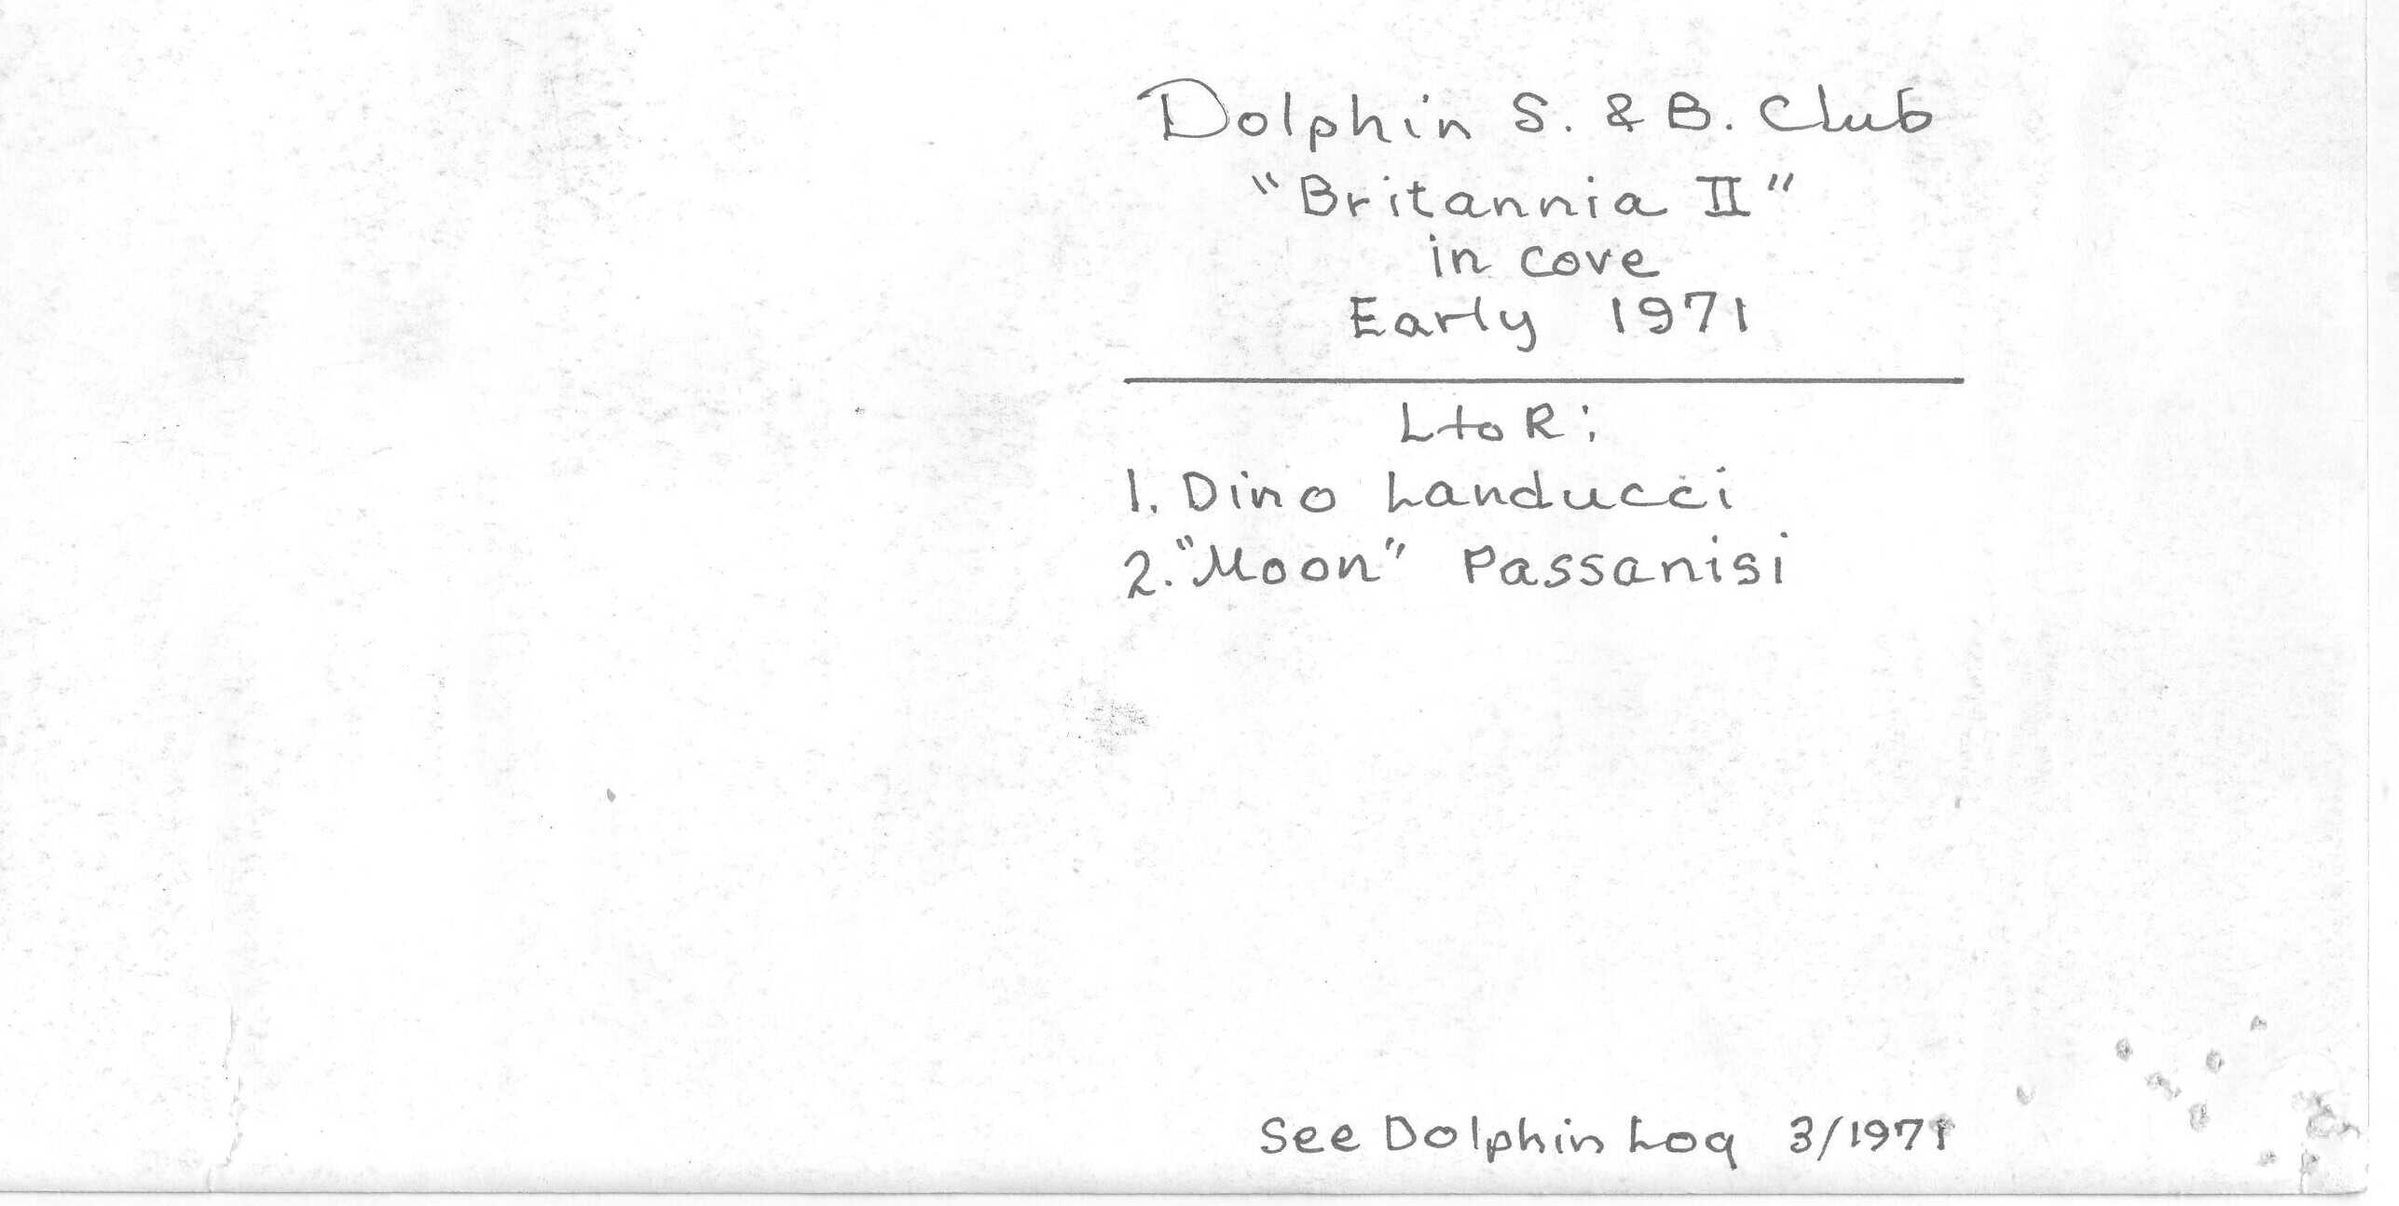 Dolphin S. & B. Club
"Britannia II"
in cove
Early 1971
L to R:
1. Dino Landucci
2. "Moon" Passanisi
See Dolphin Log 3/1971